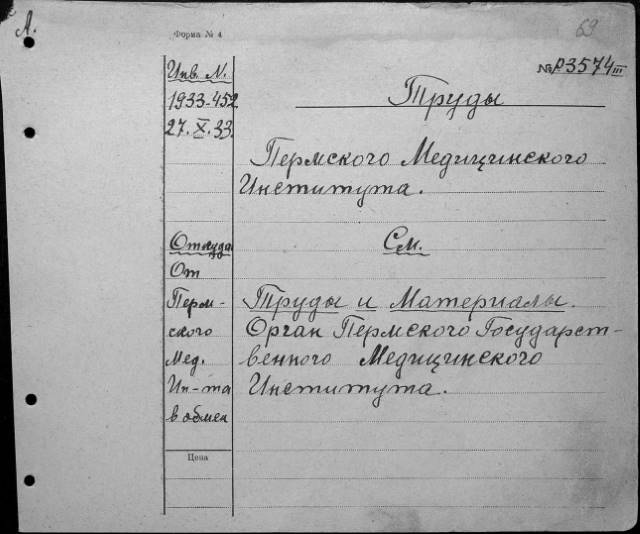 А.
Форма № 4
69
№ Р3574 III
Инв. N.
1933-452
27.X.33.
Труды
Пермского Медицинского
Института.
Откуда
От
Перм-
ского
Мед.
Ин-та
в обмен
Цена
См.
Труды и Материалы.
Орган Пермского Государст-
венного Медицинского
Института.